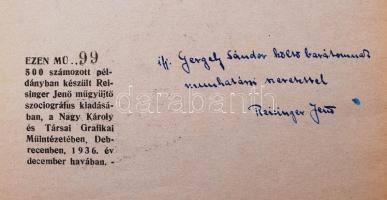 EZEN MŰ..99
500 számozott pél-
dányban készült Rei-
singer Jenő műgyüjtő
szociográfus kiadásá-
ban, a Nagy Károly
és Társai Grafikai
Műintézetében, Deb-
recenben, 1936. év
december havában. -
ifj. Gergely Sándor költő barátomnak
munkatársi szeretettel
Reisinger Jenő
darabanth